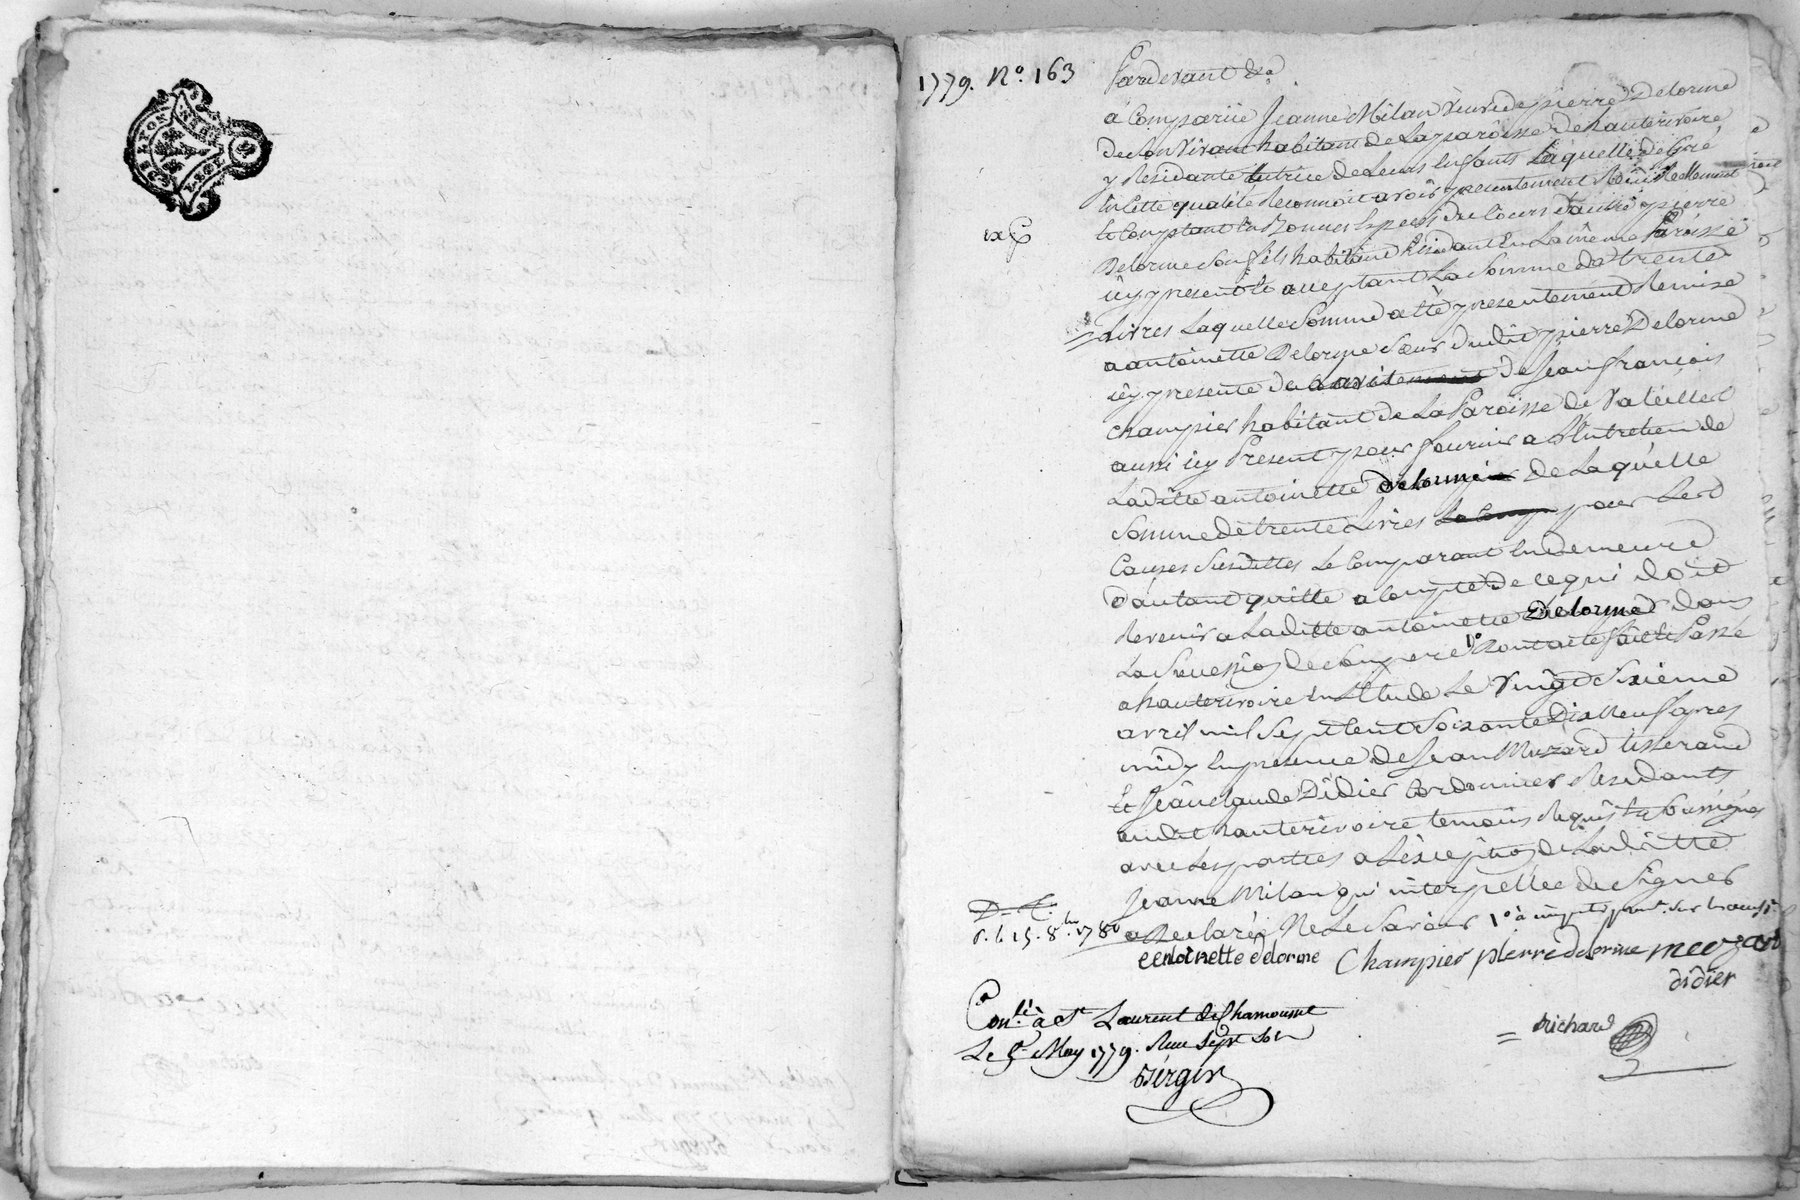 LYON
1779. N°. 163
Pardevant &a
a Comparüe Jeanne Milan Veuve de pierre Delorme
de son Vivant habitant de La paroisse de hauterivoire
y Residante tutrice de Leurs Enfants Laquelle de Gré
En Cette qualité Reconnoit avoir presentement Reçu Reellement
Et Comptant En bonnes Especes du Cours d'autre pierre
Delorme Son fils habitant Residant En La même Paroisse
icy present Et acceptant La Somme de trente
Livres Laquelle Somme a Eté presentement Remise
a antoinette Delorme Sœur dudit pierre Delorme
icy presente de Jean françois
Champier habitant de La Paroisse de Valeilles
aussi icy Present pour fournir a L'Entretien de
Laditte antoinette Delorme de Laquelle
Somme de trente Livres pour Les
Causes Susdittes Le Comparant En demeure
d'autant quitte a Compte de ce qui doit
Revenir a Laditte antoinette Delorme dans
La Succession de Son pere 1° Dont acte fait Et Passé
a hauterivoire En L'Etude Le Vingt Sixieme
avril mil Sept Cent Soixante Dix Neuf apres
midy En presence de Jean Muzard tisserand
Et Jean Claude Didier Cordonnier Residants
audit hauterivoire temoins Requis Et Soussignés
avec Les parties a L'Exception de Laditte
Jeanne Milan qui interpellée de Signer
a Declaré Ne Le Savoir 1° à
1780
entoinette delorme Champier pierre delorme meuzard
didier
Con.lé à St Laurent de Chamousset
Le 5 May 1779. Reçu Sept Sols
richard
Bergér